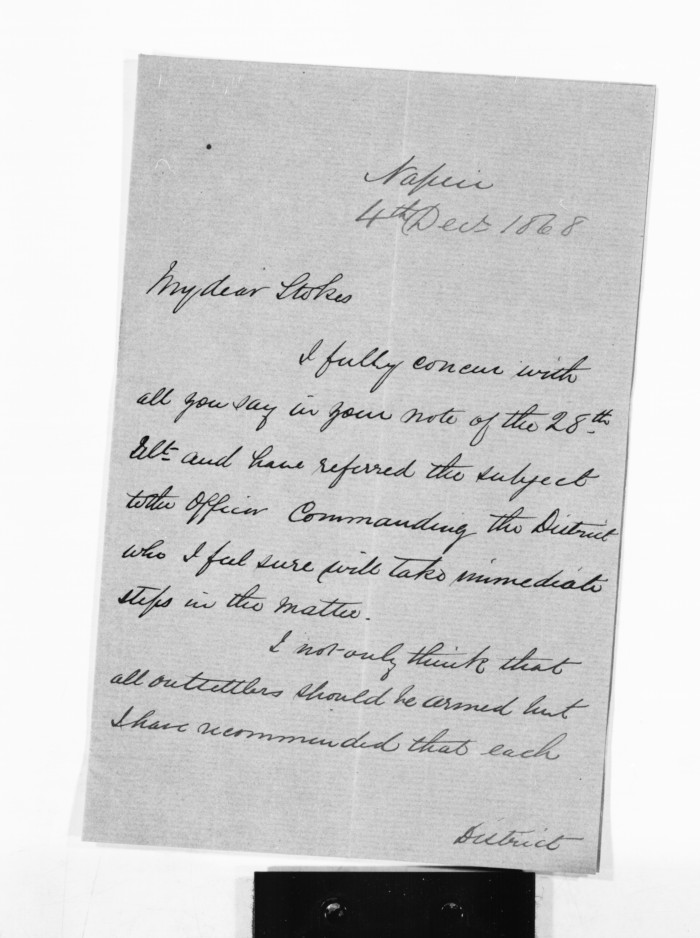 Napier
4th Decr 1868
My dear Stokes
I fully concur with
all you say in your note of the 28th
Ult and have referred the subject
to the Officer Commanding the District
who I feel sure will take immediate
steps in the matter.
I not only think that
all outsettlers should be armed but
I have recommended that each
District